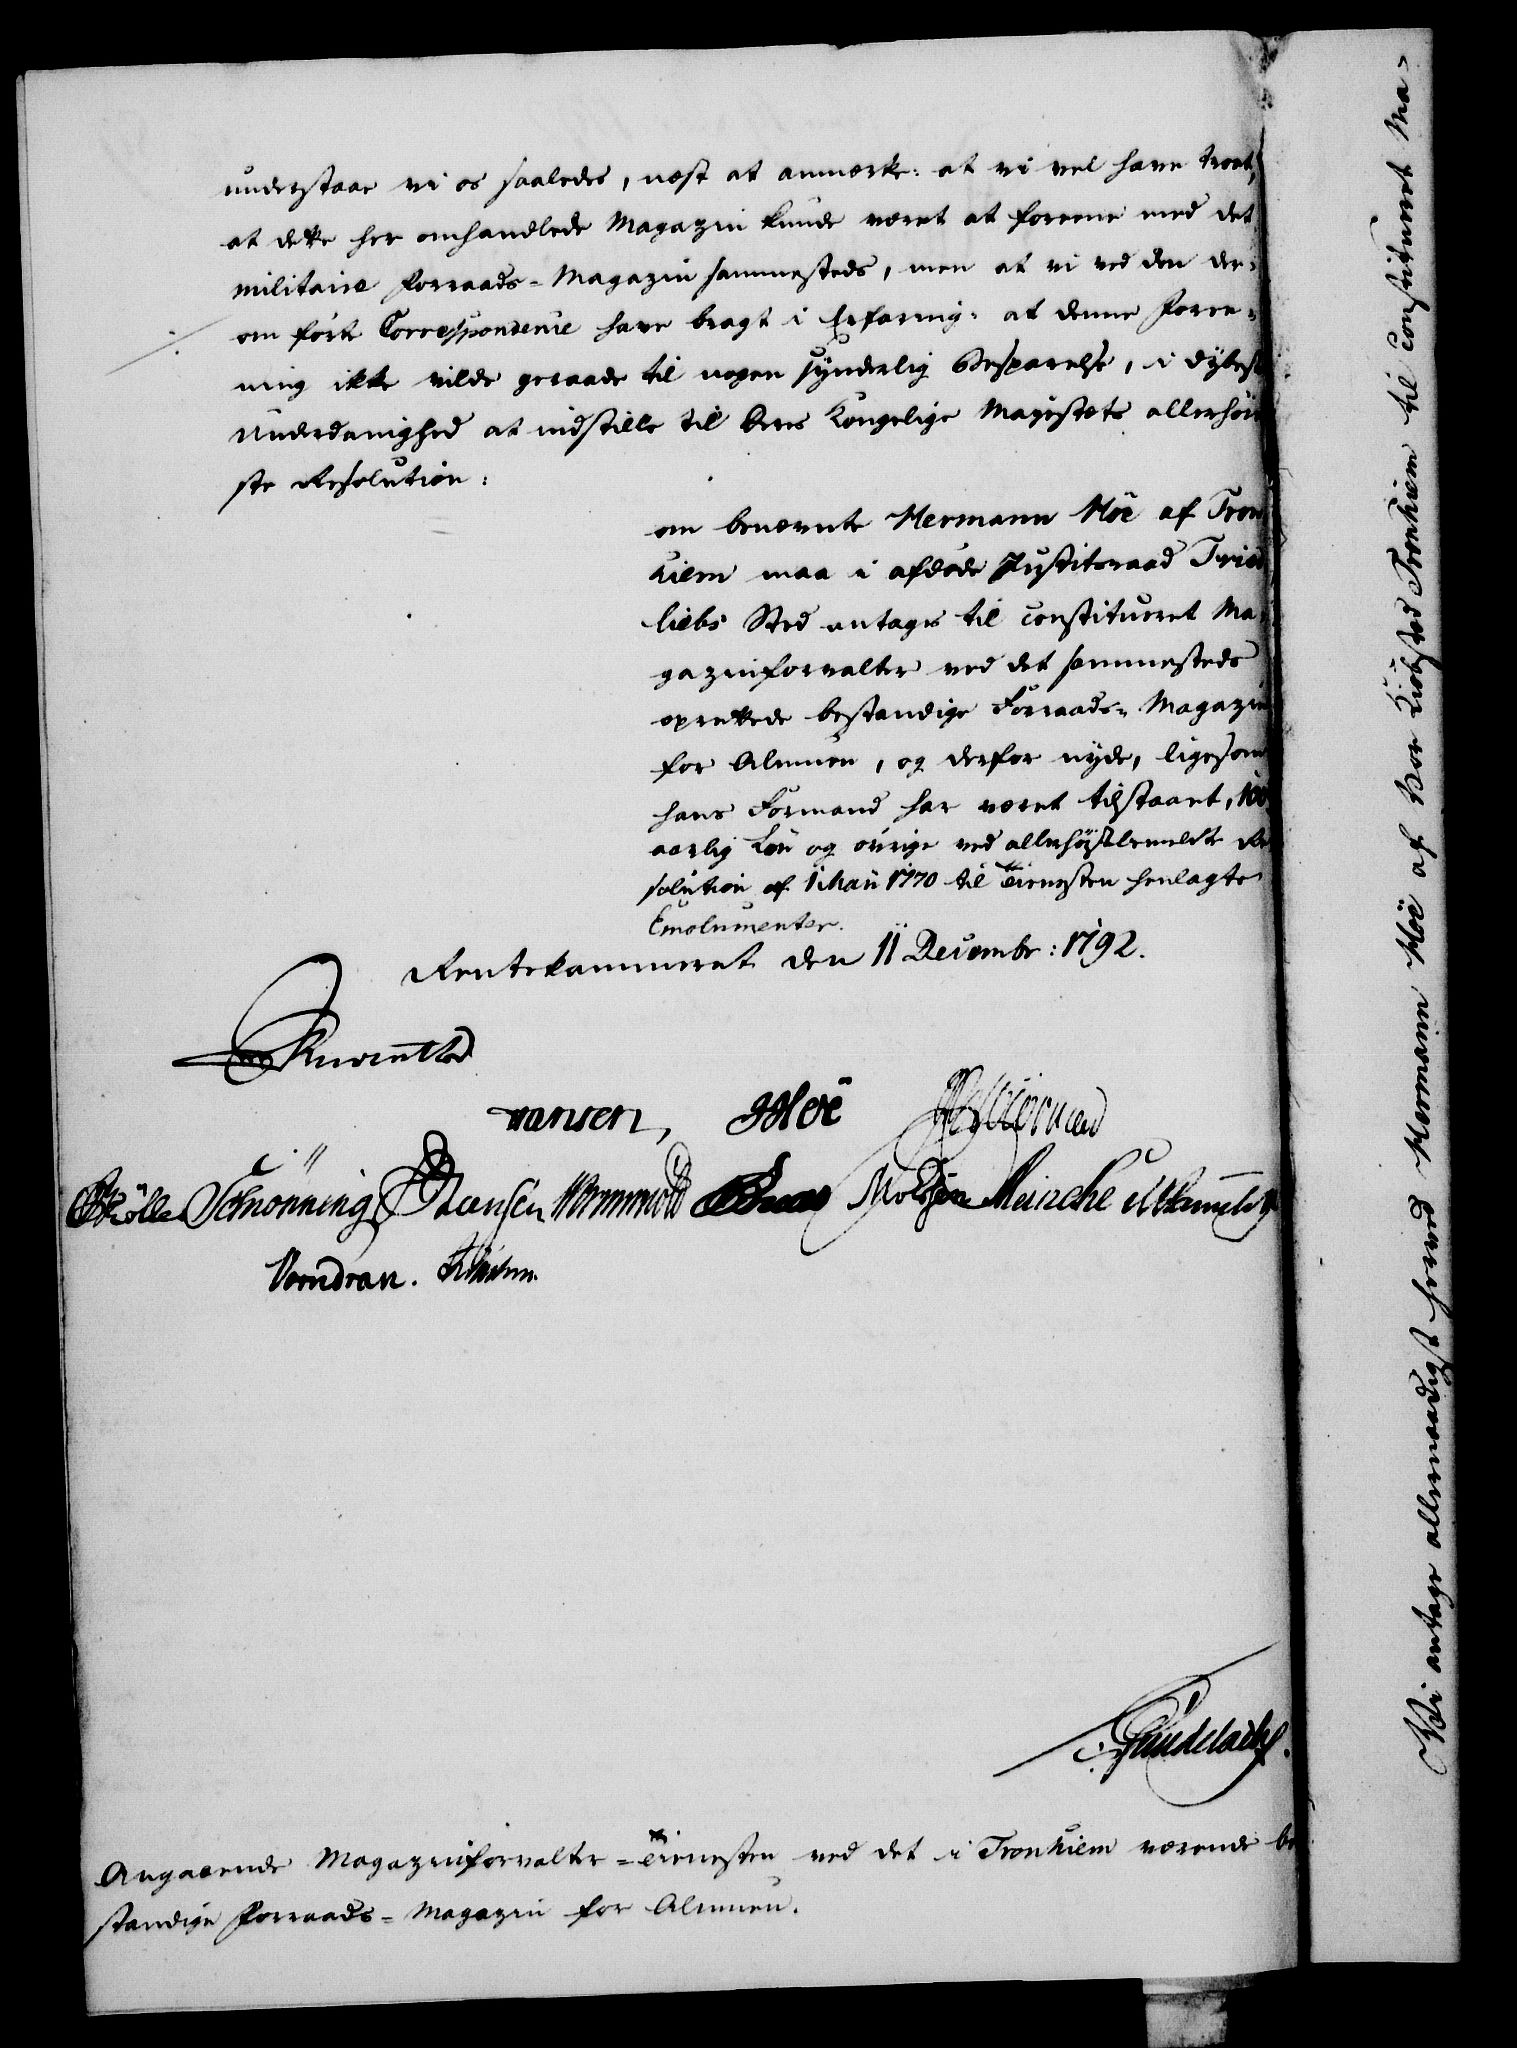 understaae vi os saaledes, næst at anmærke: at vi vel have troet,
at dette her omhandlede Magazin kunde været at foreene med det
militaire Forraads-Magazin sammesteds, men at vi ved den der-
om førte Correspondence have bragt i Erfaring: at denne Foree-
ning ikke vilde geraade til nogen synderlig Besparelse, i dybest
Underdanighed at indstille til Deres Kongelige Majestæts allerhøi-
ste Resolution:
om benævnte Hermann Höe af Tron-
hiem maa i afdøde Justitsraad Fried-
liebs Sted antages til constitueret Ma-
gazinforvalter ved det sammesteds
oprettede bestandige Forraads-Magazin
for Almuen, og derfor nyde, ligesom
hans Formand har været tilstaaet, 100
aarlig Løn og øvrige ved allerhøistbemeldte Re-
solution af 1 Maii 1770 til Tienesten henlagte
Emolumenter.
Rentekammeret den 11 Decembr: 1792.
Reventlow
Hansen, Höe
Schønning Hansen Wormwold Meinche
Vorndran.
Gundelach.
Angaaende Magazinforvalter-Tienesten ved det i Tronhiem værende be-
standige Forraads-Magazin for Almuen.
Vi antage allernaadigst herved Hermann Höe af Vor Kiøbsted Tronhiem til constitueret Ma-